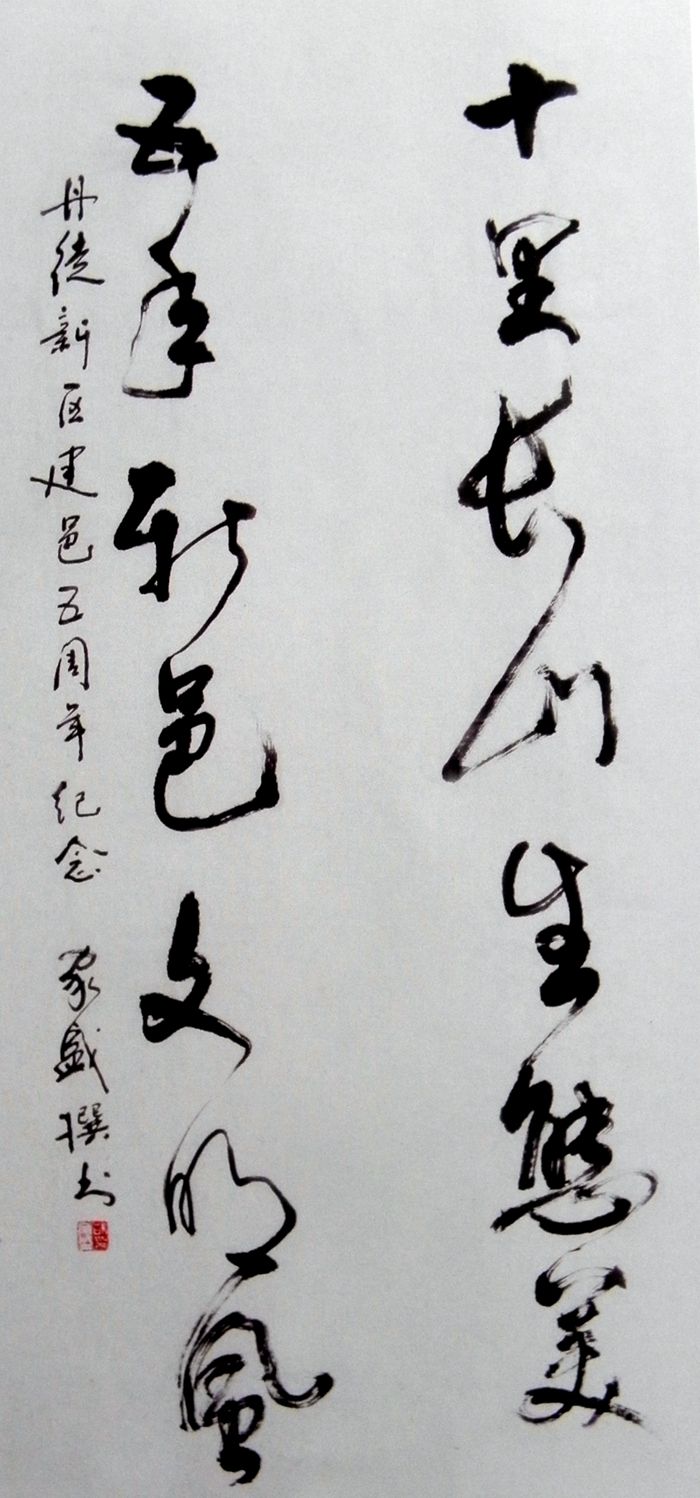 十里长山生態美
五年新邑文明风
丹徒新区建邑五周年纪念 家盛撰书